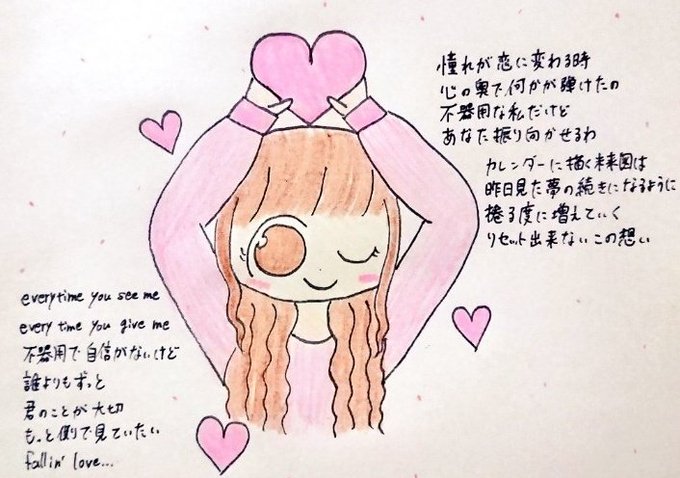 憧れが恋に変わる時
心の奥で何かが弾けたの
不器用な私だけど
あなた振り向かせるわ
カレンダーに描く未来図は
昨日見た夢の続きになるように
捲る度に増えていく
リセット出来ないこの想い
everytime you see me
every time you give me
不器用で自信がないけど
誰よりもずっと
君のことが大切
もっと側で見ていたい
fallin' love...